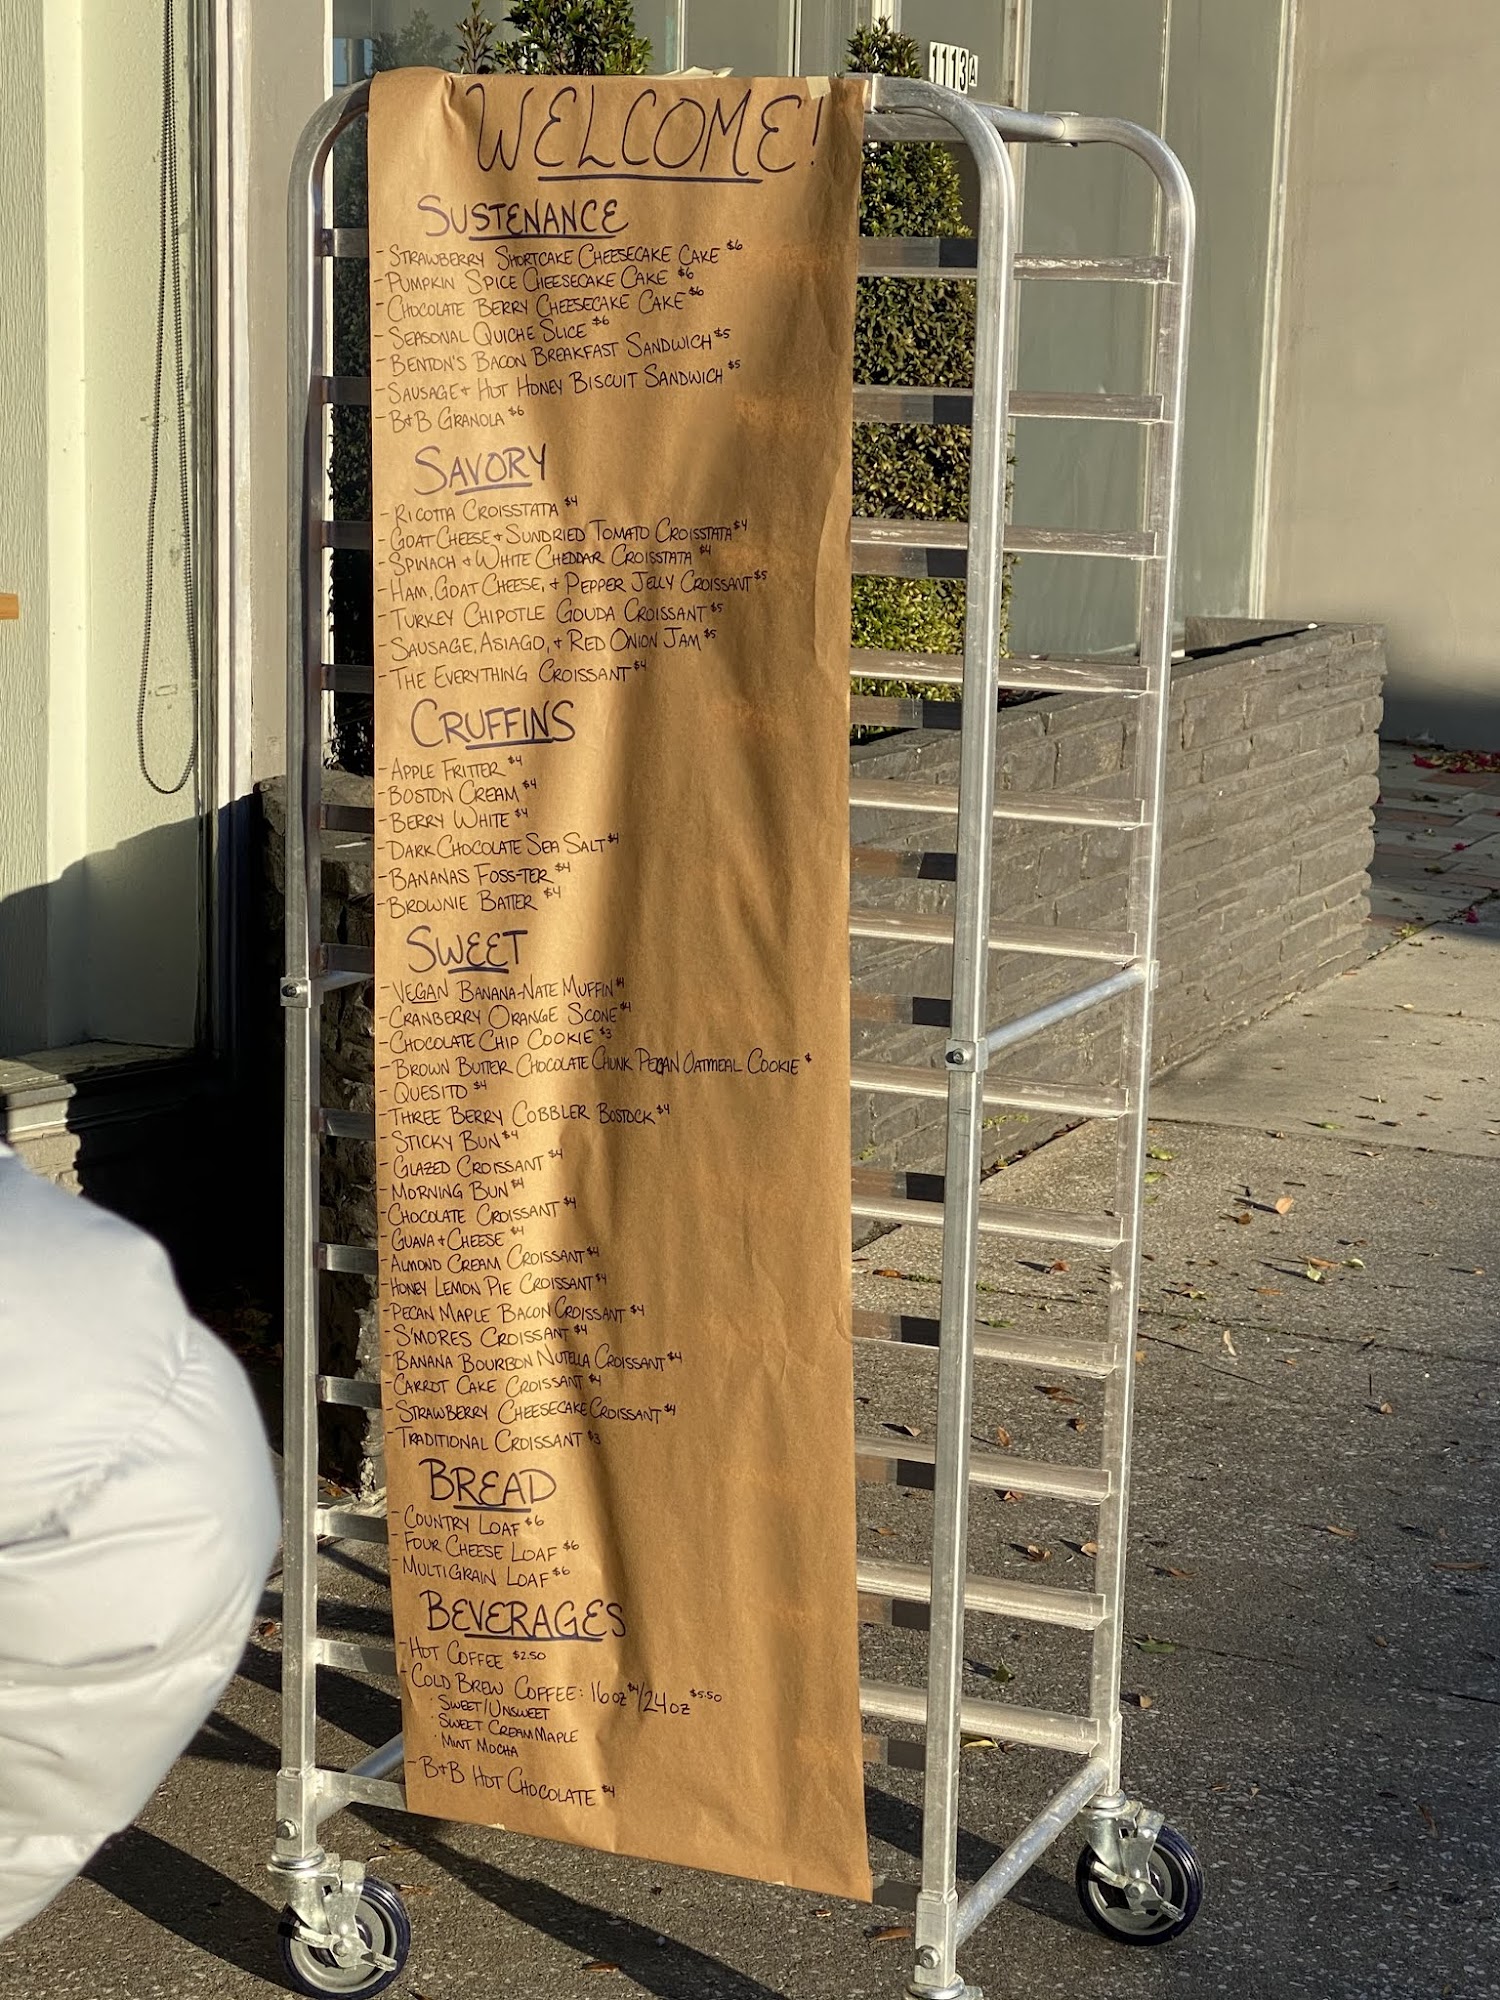 1113A
WELCOME!
SUSTENANCE
- STRAWBERRY SHORTCAKE CHEESECAKE CAKE $6
- PUMPKIN SPICE CHEESECAKE CAKE $6
- CHOCOLATE BERRY CHEESECAKE CAKE $6
- SEASONAL QUICHE SLICE $6
- BENTON'S BACON BREAKFAST SANDWICH $5
- SAUSAGE + HOT HONEY BISCUIT SANDWICH $5
- B+B GRANOLA $6
SAVORY
- RICOTTA CROISSTATA $4
- GOAT CHEESE + SUNDRIED TOMATO CROISSTATA $4
- SPINACH + WHITE CHEDDAR CROISSTATA $4
- HAM, GOAT CHEESE, + PEPPER JELLY CROISSANT $5
- TURKEY CHIPOTLE GOUDA CROISSANT $5
- SAUSAGE, ASIAGO, + RED ONION JAM $5
- THE EVERYTHING CROISSANT $4
CRUFFINS
- APPLE FRITTER $4
- BOSTON CREAM $4
- BERRY WHITE $4
- DARK CHOCOLATE SEA SALT $4
- BANANAS FOSS-TER $4
- BROWNIE BATTER $4
SWEET
- VEGAN BANANA-NATE MUFFIN $4
- CRANBERRY ORANGE SCONE $4
- CHOCOLATE CHIP COOKIE $3
- BROWN BUTTER CHOCOLATE CHUNK PECAN OATMEAL COOKIE
- QUESITO $4
- THREE BERRY COBBLER BOSTOCK $4
- STICKY BUN $4
- GLAZED CROISSANT $4
- MORNING BUN $4
- CHOCOLATE CROISSANT $4
- GUAVA + CHEESE $4
- ALMOND CREAM CROISSANT $4
- HONEY LEMON PIE CROISSANT $4
- PECAN MAPLE BACON CROISSANT $4
- S'MORES CROISSANT $4
- BANANA BOURBON NUTELLA CROISSANT $4
- CARROT CAKE CROISSANT $4
- STRAWBERRY CHEESECAKE CROISSANT $4
- TRADITIONAL CROISSANT $3
BREAD
- COUNTRY LOAF $6
- FOUR CHEESE LOAF $6
- MULTIGRAIN LOAF $6
BEVERAGES
- HOT COFFEE $2.50
- COLD BREW COFFEE: 16oz $4/24oz $5.50
· SWEET/UNSWEET
· SWEET CREAM MAPLE
· MINT MOCHA
- B+B HOT CHOCOLATE $4